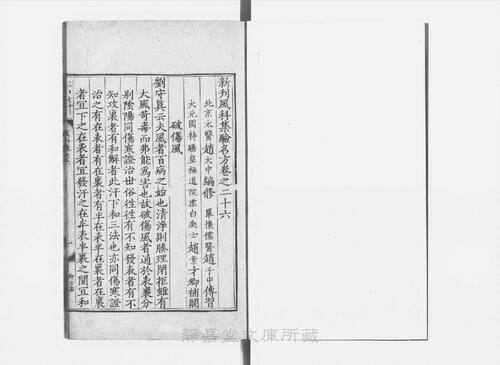 新刊風科集驗名方卷之二十六
北京太醫趙大中編修 覃懷儒醫趙子中傳習
大元國特賜皇極道院虛白處士趙素才卿補闕
破傷風
劉守真云夫風者百病之始也清淨則腠理閉拒雖有
大風苛毒而弗能為害也故破傷風者通於表裏分
別陰陽同傷寒證治世俗徃徃有不知發表者有不
知攻裏者有和解者此汗下和三法也亦同傷寒證
治之有在表者有在裏者有半在表半在裏者在裏
者宜下之在表者宜發汗之在半表半裏之間宜和
靜嘉堂文庫所藏